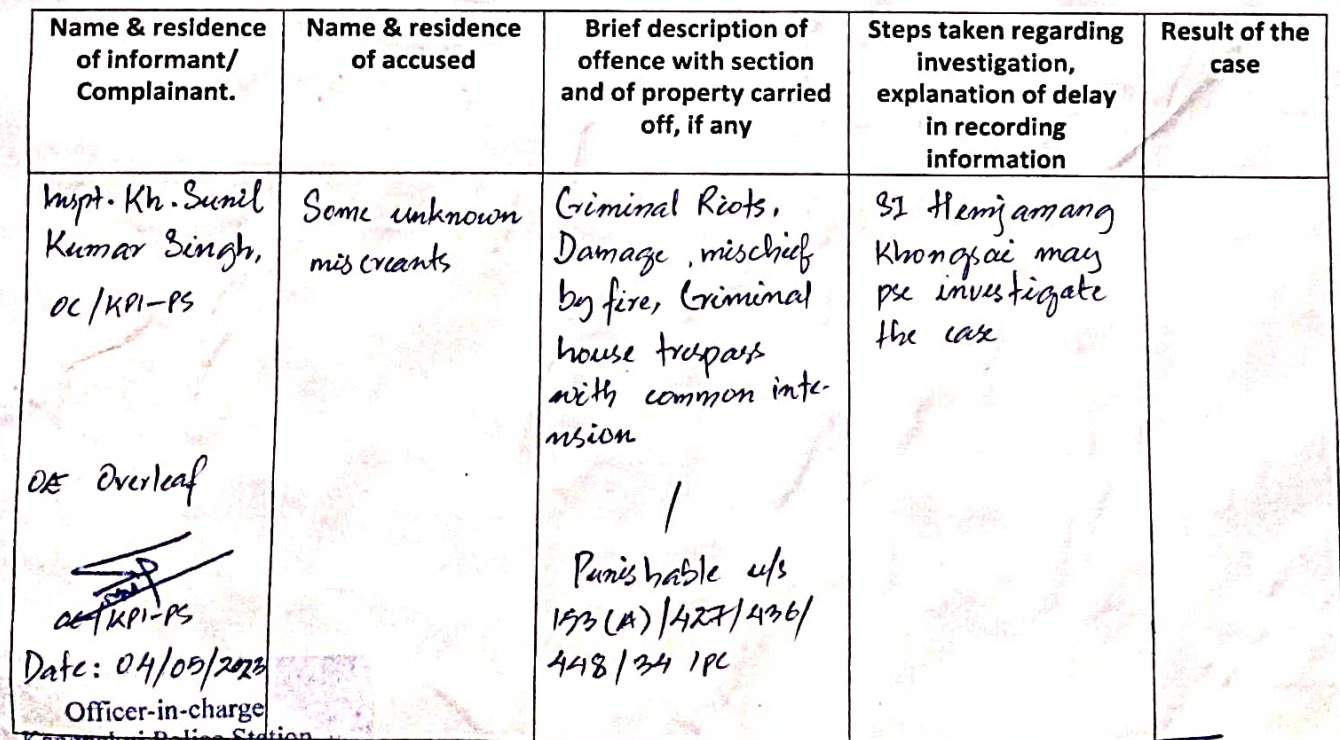 Name & residence
of informant/
Complainant.
Name & residence
of accused
Brief description of
offence with section
and of property carried
off, if any
Steps taken regarding
investigation,
explanation of delay
in recording
information
Result of the
case
Inspt. Kh. Sunil
Kumar Singh,
OC/KPI-PS
OE Overleaf
OC/KPI-PS
Date: 04/05/2023
Officer-in-charge
Police Station
Some unknown
miscreants
Criminal Riots,
Damage, mischief
by fire, Criminal
house trespass
with common inte-
nsion
/
Punishable u/s
153(A)/427/436/
448/34 IPC
SI Hemjamang
Khongsai may
pse investigate
the case